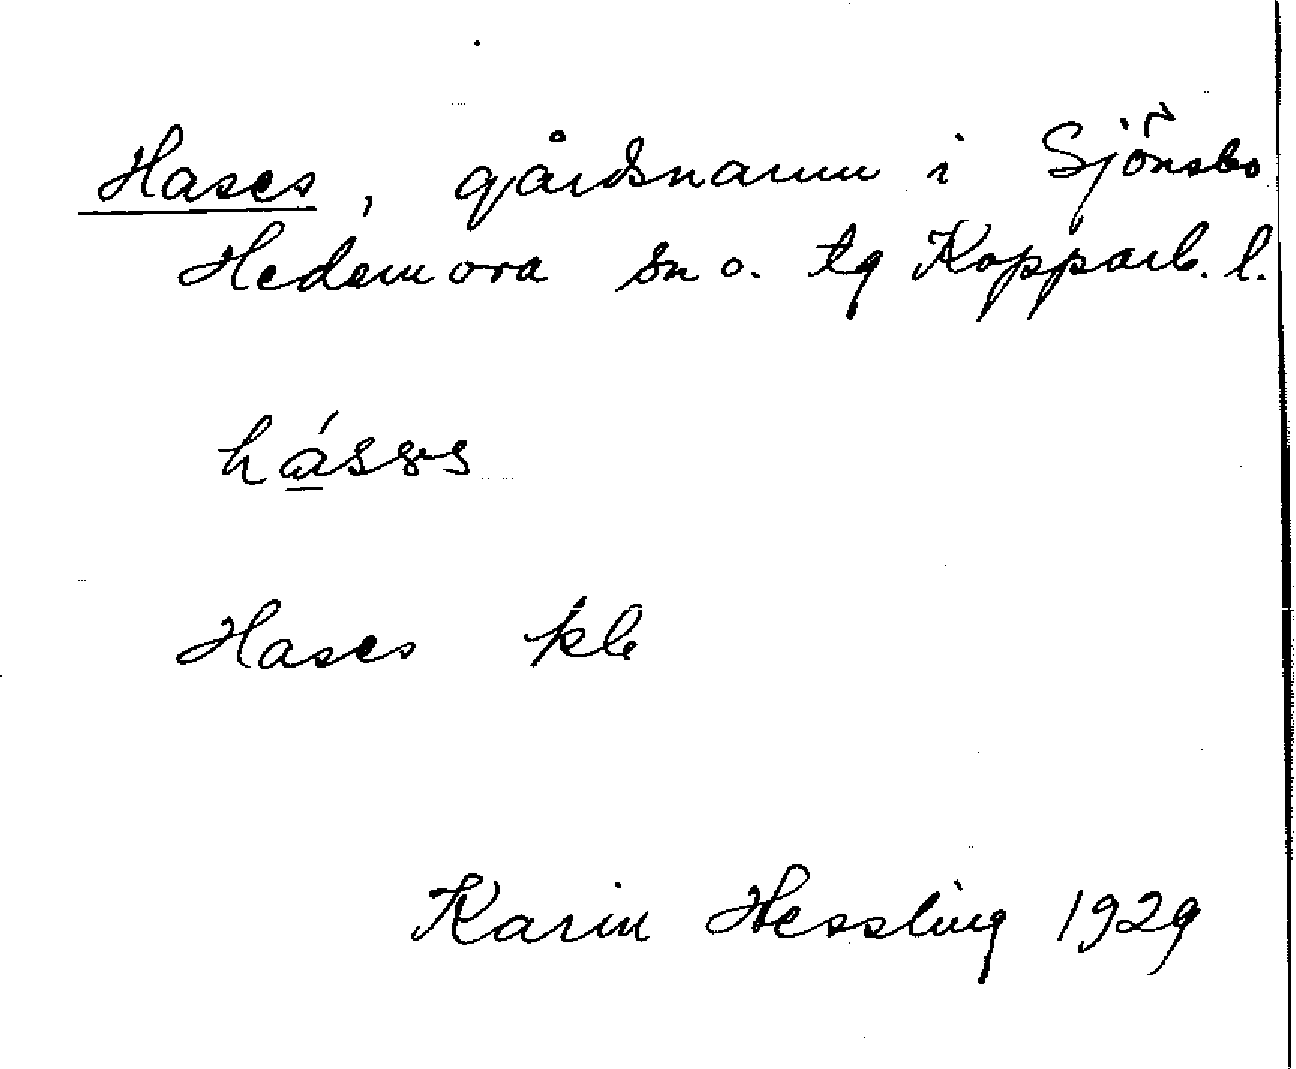 Hases, gårdsnamn i Sjönsbo
Hedemora sn o. tg Kopparb. l.
Hases
Karin Hessling 1929